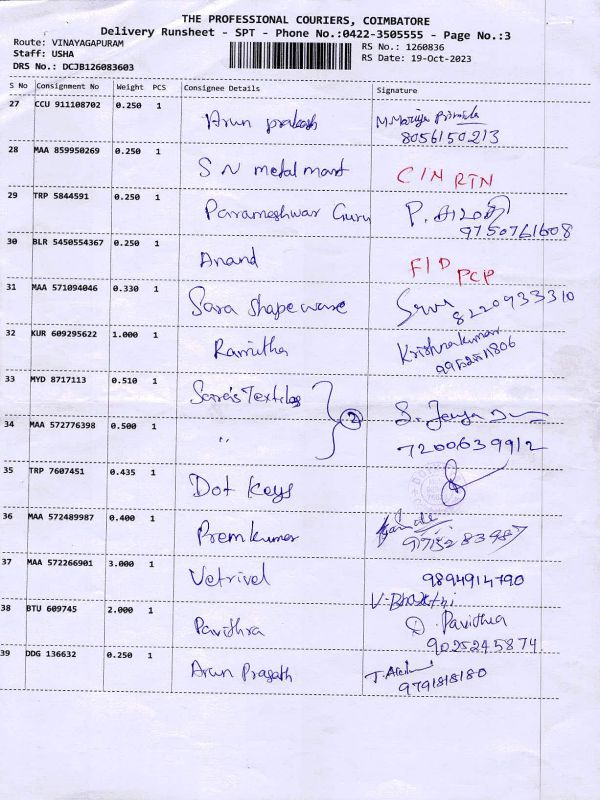 THE PROFESSIONAL COURIERS, COIMBATORE
Delivery Runsheet - SPT - Phone No.:0422-3505555 - Page No.:3
Route: VINAYAGAPURAM
Staff: USHA
DRS No.: DCJB126083603
RS No.: 1260836
RS Date: 19-Oct-2023
S No Consignment No Weight PCS Consignee Details Signature
27 CCU 911108702 0.250 1 Arun prakash
8056150213
28 MAA 859950269 0.250 1 S N metal mart C/N RTN
29 TRP 5844591 0.250 1 Parameshwar Guru P.
9750761608
30 BLR 5450554367 0.250 1 Anand F/D PCP
31 MAA 571094046 0.330 1 Sara shape ware
8220933310
32 KUR 609295622 1.000 1 Ramitha Krishnakumar
33 MYD 8717113 0.510 1 Sara's Textiles S. Jaya
34 MAA 572776398 0.500 1 " 2 7200639912
35 TRP 7607451 0.435 1 Dot Keys
36 MAA 572489987 0.400 1 Premkumar
37 MAA 572266901 3.000 1 Vetrivel 9894914790
V. Bharathi
38 BTU 609745 2.000 1 Pavithra D. Pavithra
9025245874
39 DDG 136632 0.250 1 Arun Prasath T.
9791818180